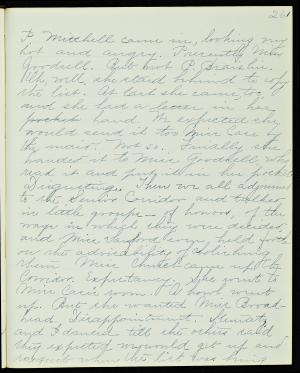 261
P. Mitchell came in, looking very
hot and angry. Presently Miss
Goodsell. But not G.
Oh, well, she staid behind to copy
the list. At last she came, too,
and she had a letter in her
pocket hand. We expected she
would send it to Miss Case by
the maid. Not so. Finally she
handed it to Miss Goodsell, who
read it and put it in her pocket.
Disgusting. Then we all adjourned
to the Senior Corridor and talked
in little groups — of honors, of the
ways in which they were decided,
and Miss Sanford even held forth
on the advisability of abolishing
them. Miss came up the
Corridor. Expectancy. She went to
Miss Case's room. A howl went
up. But she wanted Miss Broad-
head. Disappointment.
and I danced till the others said
they expected we would get up and
when the list was being